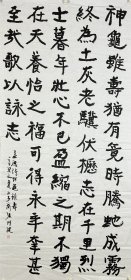 神龜雖壽猶有竟時騰蛇成霧
終為土灰老驥伏櫪志在千里烈
士暮年壯心不已盈縮之期不獨
在天養怡之福可得永年幸甚
至哉歌以詠志